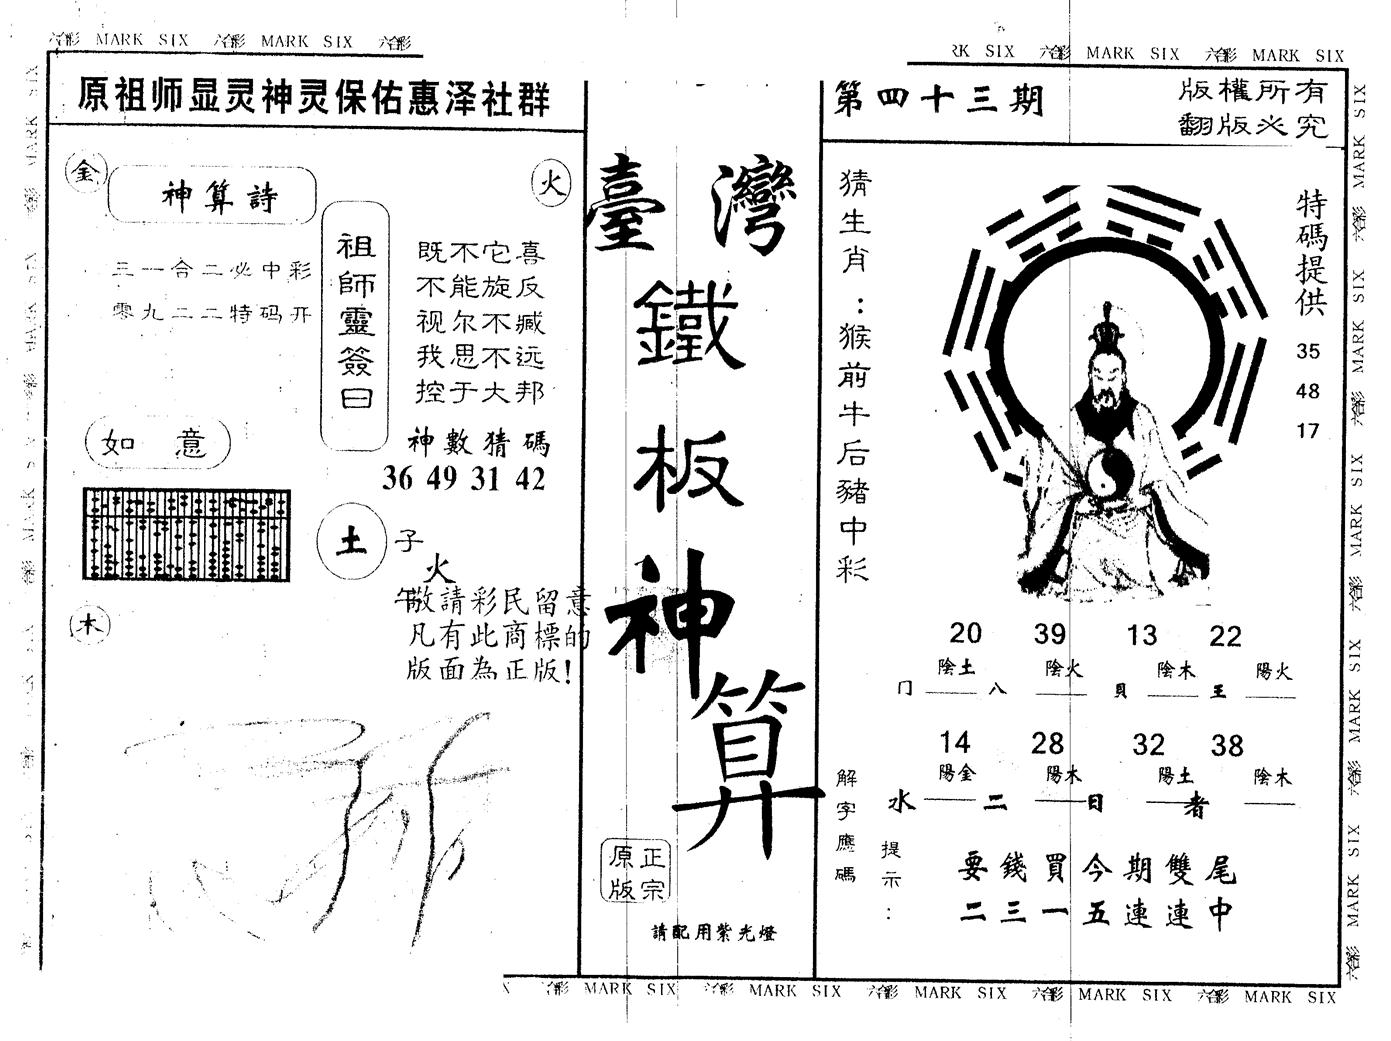 六合彩 MARK SIX 六合彩 MARK SIX 六合彩
RK SIX 六合彩 MARK SIX 六合彩 MARK SIX
原祖师显灵神灵保佑惠泽社群
金
神算詩
火
三一合二必中彩
零九二二特码开
祖師靈簽曰
既不它喜
不能旋反
视尔不臧
我思不远
控于大邦
如意
神數猜碼
36 49 31 42
土
子
火
午
木
敬請彩民留意
凡有此商標的
版面為正版!
臺灣
鐵
板
神
算
正宗
原版
請配用紫光燈
第四十三期
版權所有
翻版必究
猜生肖：猴前牛后豬中彩
特碼提供
35
48
17
20 39 13 22
陰土 陰火 陰木 陽火
门 八 貝 王
14 28 32 38
陽金 陽木 陽土 陰木
水 二 日 者
解字應碼
提示：
要錢買今期雙尾
二三一五連連中
六合彩 MARK SIX 六合彩 MARK SIX 六合彩 MARK SIX 六合彩 MARK SIX 六合彩 MARK SIX